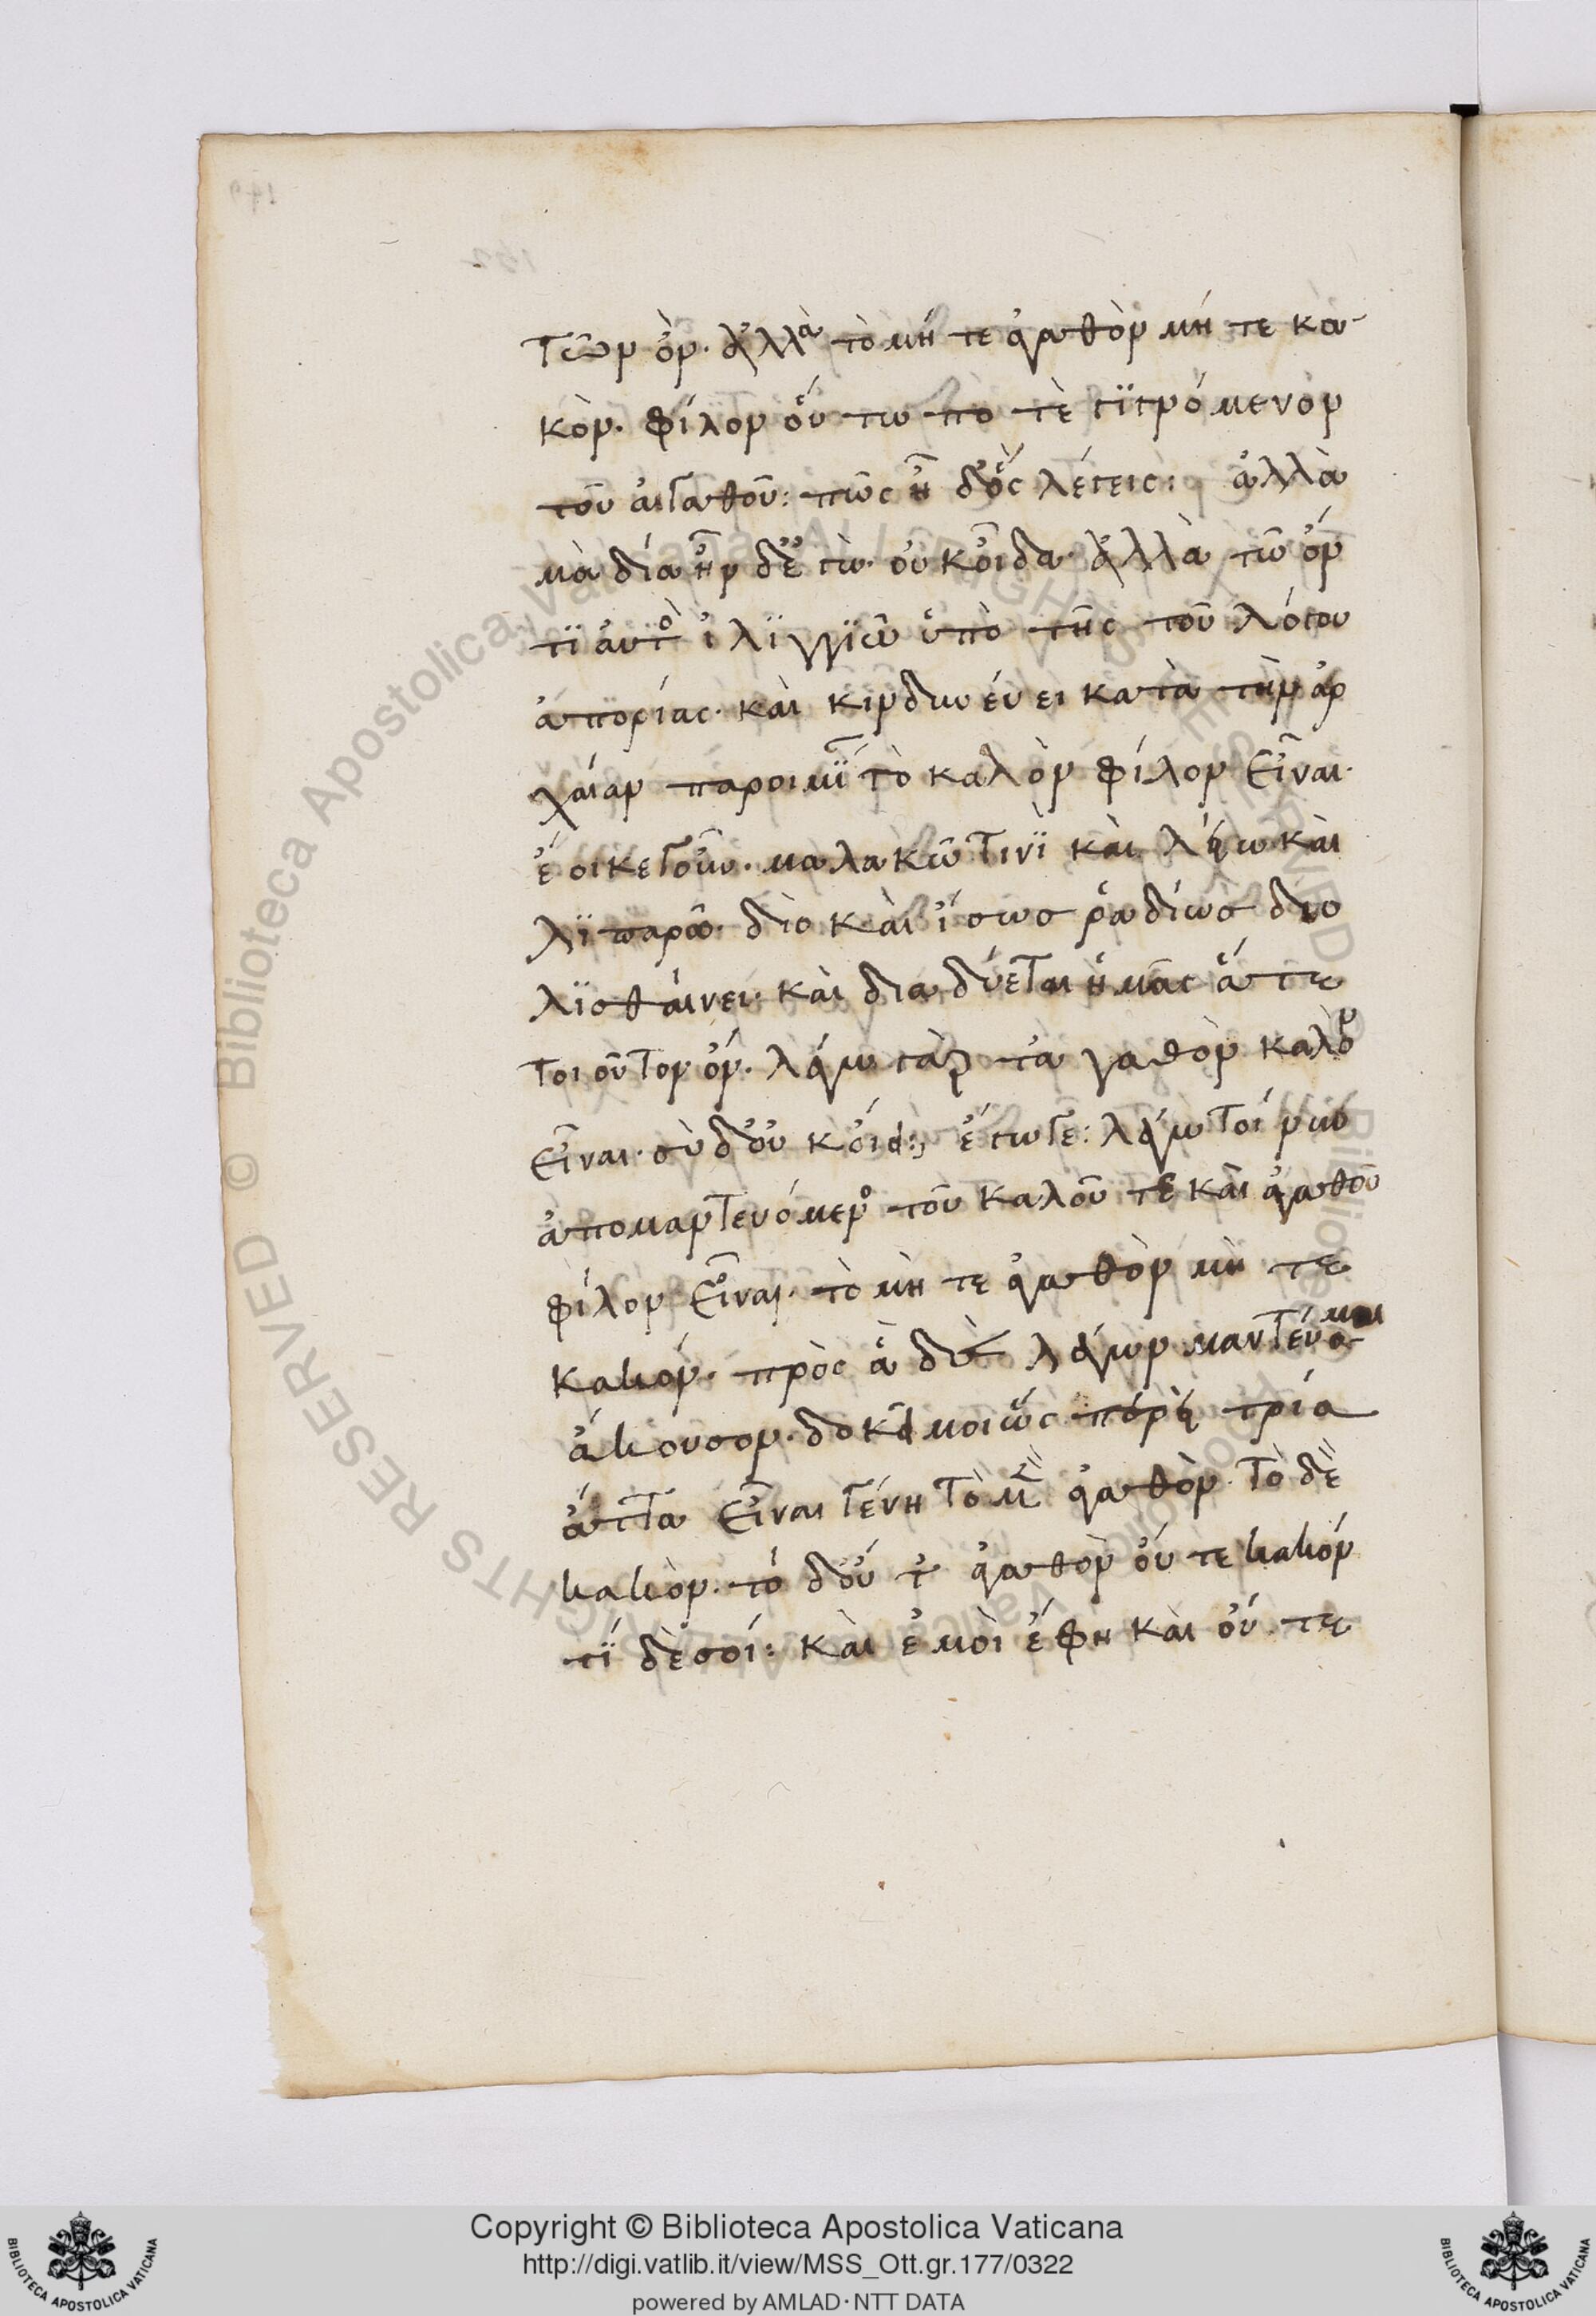 των ὂν. ἀλλὰ τὸ μήτε ἀγαθὸν μήτε κα-
κὸν. φίλον οὕτω ποτὲ γϊγνόμενον
τοῦ ἀγαθοῦ: πῶς ἦ δ' ὃς λέγεις: ἀλλὰ
μὰ δία ἦν δ' ἐγὼ. οὐκ οἶδα. ἀλλὰ τῶ ὄν
τϊ αὐτὸ ἰλϊγγϊῶ ὑπὸ τῆς τοῦ λόγου
ἀπορίας. καὶ κινδυνέυει κατὰ τὴν ἀρ
χαίαν παροιμΐ τὸ καλὸν φίλον εἶναι.
ἔοικε γοῦν. μαλακῶ τινϊ καὶ λείω καὶ
λϊπαρῶ. διὸ καὶ ἴσως ῥαδίως διο
λϊσθαίνει. καὶ διαδύεται ἡμᾶς ἅτε
τοιοῦτον ὄν. λέγω γὰρ τἀγαθὸν καλὸν
εἶναι. σὺ δ' οὐκ οἴει; ἔγωγε: λέγω τοίνυν
ἀπομαντευόμενο τοῦ καλοῦ τε καὶ ἀγαθοῦ
φίλον εἶναι. τὸ μὴτε ἀγαθὸν μὴτε
κακόν. πρὸς ἃ δὲ λέγων μαντεύομαι
ἄκουσον. δοκεῖ μοι ὥς περεὶ τρία
ἄττα εἶναι γένη τὸ μὲν ἀγαθὸν. τὸ δὲ
κακὸν. τὸ δ' οὔτ' ἀγαθὸν οὔτε κακόν
τΐ δὲ σοί: καὶ ἐμοὶ ἔφη καὶ οὔτε
Copyright © Biblioteca Apostolica Vaticana
http://digi.vatlib.it/view/MSS_Ott.gr.177/0322
powered by AMLAD·NTT DATA